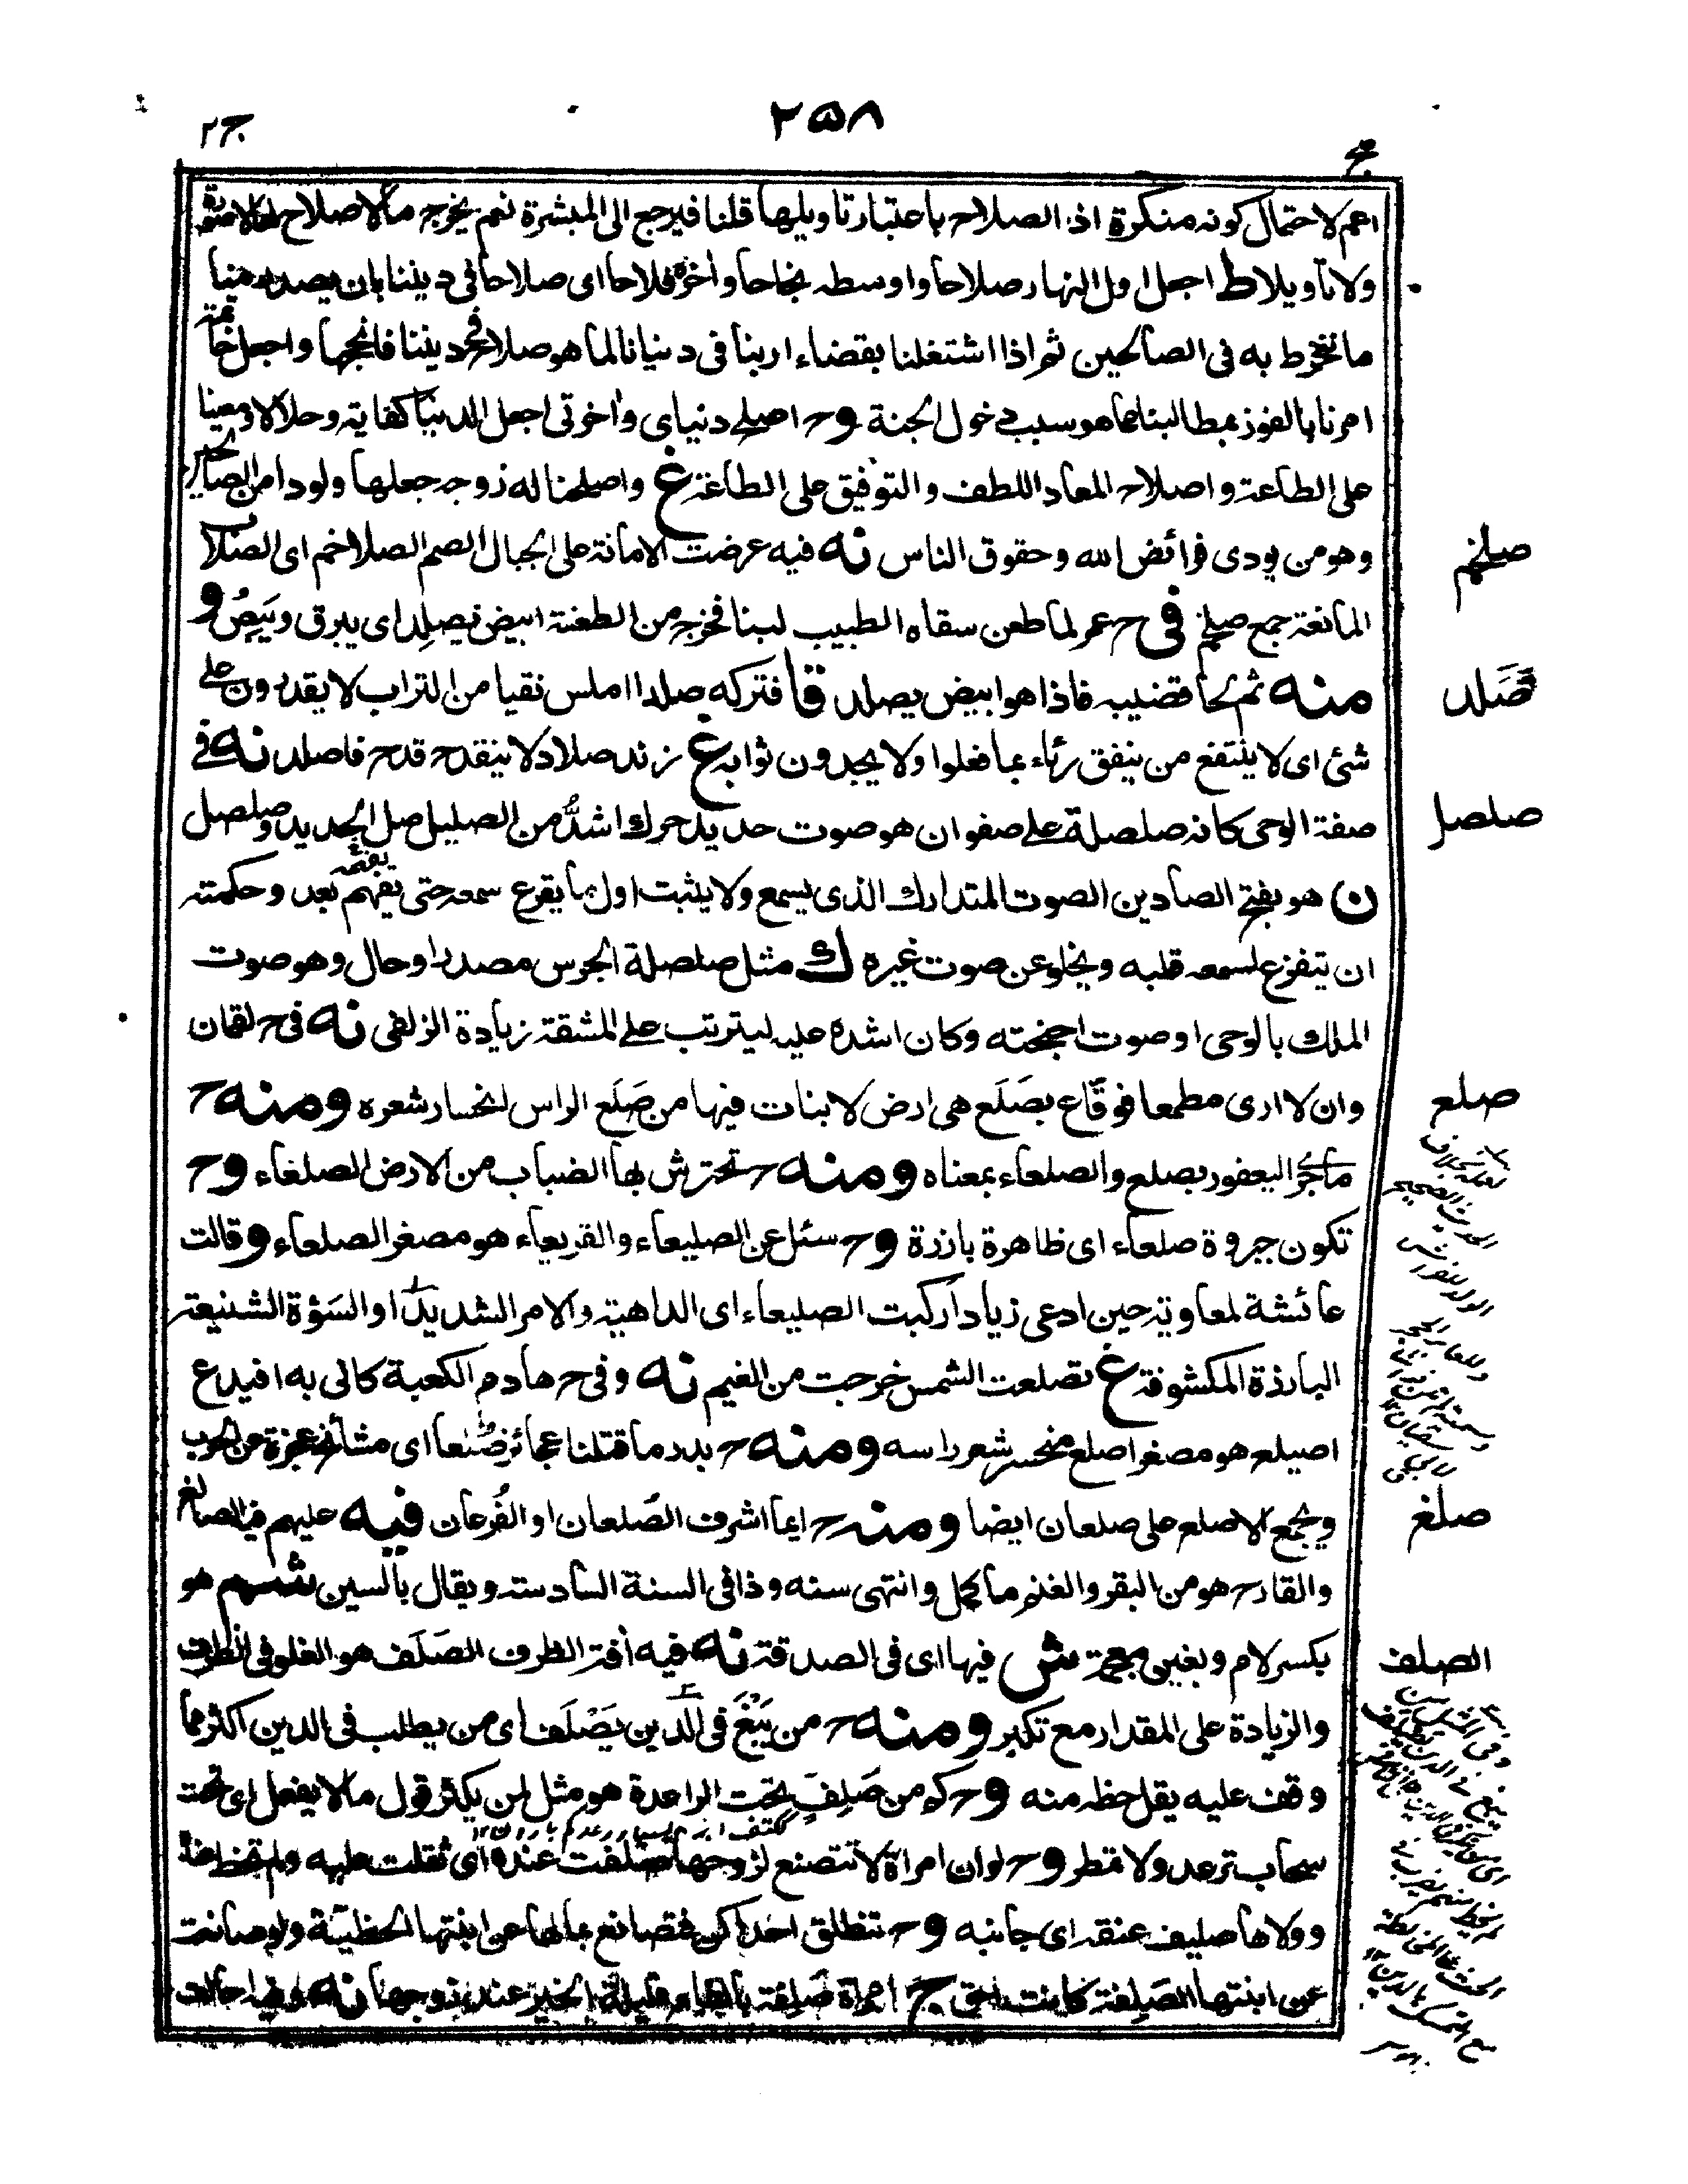 ج٢
٢٥٨
اعم لاحتمال كونه منكرة اذ الصلاح باعتبار تاويلها قلنا فيرجع الى المبشرة نعم يخرج مالا صلاح لها لا صورة
ولا تاويلا ط اجعل اول النهار صلاحا واوسطه نجاحا واخره فلاحا اى صلاحا فى ديننا بان يصدر منا
ما ننخرط به فى الصالحين ثم اذا اشتغلنا بقضاء اربنا فى دنيانا لما هو صلاح فى ديننا فانجحها واجعل خاتمة
امرنا بالفوز بمطالبنا مما هو سبب دخول الجنة وح اصلح دنياى واخرتى اجعل الدنيا كفاية وحلالا ومعينا
على الطاعة واصلاح المعاد اللطف والتوفيق على الطاعة غ واصلحنا له زوجه جعلها ولودا من الصالحين
وهو من يودى فرائض الله وحقوق الناس نه فيه عرضت الامانة على الجبال الصم الصلاخم اى الصلاب
صلخم
المانعة جمع صلخم فى ح عمر لما طعن سقاه الطبيب لبنا فخرج من الطعنة ابيض يصلد اى يبرق ويبص و
منه ثم لحا قضيبه فاذا هو ابيض يصلد قا فتركه صلدا املس نقيا من التراب لا يقدرون على
صلد
شئ اى لا ينتفع من ينفق رئاء بما فعلوا ولا يجدون ثوابه غ زند صلاد لا ينقدح قدح فاصلد نه فى
صفة الوحى كانه صلصلة على صفوان هو صوت حديد حرك اشد من الصليل صل الحديد وصلصل
صلصل
ن هو بفتح الصادين الصوت المتدارك الذى يسمع ولا يثبت اول ما يقرع سمعه حتى يفهم بعد وحكمته
ان يتفرغ لسمعه قلبه ويخلو عن صوت غيره ك مثل صلصلة الجرس مصدر او حال وهو صوت
الملك بالوحى او صوت اجنحته وكان اشده عليه ليترتب على المشقة زيادة الزلفى نه فى ح لقمان
وان لا ارى مطمعا فوقاع بصلع هى ارض لا بنات فيها من صلع الراس لانحسار شعره ومنه ح
صلع
ما جرى اليعفور بصلع والصلعاء بمعناه ومنه ح تحترش بها الضباب من الارض الصلعاء وح
تكون جبروة صلعاء اى ظاهرة بارزة وح سئل عن الصليعاء والقريعاء هو مصغر الصلعاء وقالت
عائشة لمعاوية حين ادعى زيادا ركبت الصليعاء اى الداهية والامر الشديد او السوءة الشنيعة
البارزة المكشوفة غ تصلعت الشمس خرجت من الغيم نه وفى ح هادم الكعبة كانى به افيدع
اصيلع هو مصغر اصلع منحسر شعر راسه ومنه ح بدر ما قتلنا عجائز صلعا اى مشائخ عجزة عن الحرب
ويجمع الاصلع على صلعان ايضا ومنه ح ايما اشرف الصلعان او الفرعان فيه عليهم فيه الصالغ
صلغ
والقارح هو من البقر والغنم ما كمل وانتهى سنه وذا فى السنة السادسة ويقال بالسين شم هو
بكسر لام وبغين معجمة ش فيها اى فى الصدقة نه فيه آفة الظرف الصلف هو الغلو فى الظرف
الصلف
والزيادة على المقدار مع تكبر ومنه ح من يبغ فى الدين يصلف اى من يطلب فى الدين اكثر مما
وقف عليه يقل حظه منه وح كم من صلف تحت الراعدة هو مثل لمن يكثر قول مالا يفعل اى تحت
سحاب ترعد ولا تمطر وح لو ان امراة لا تتصنع لزوجها صلفت عنده اى ثقلت عليه ولم تحظ عنده
وولاها صليف عنقه اى جانبه وح تنطلق احداكن فتصانع بمالها عن ابنتها الحظية ولو صانعت
عن ابنتها الصلفة كانت احق ج امراة صلفة قليلة الخير عند زوجها نه